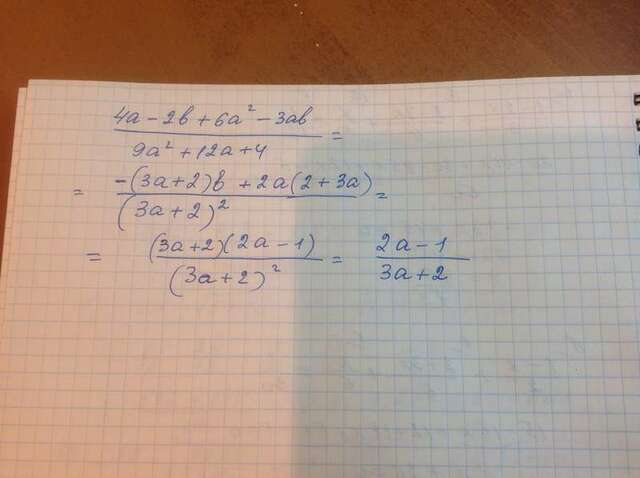 4a - 2b + 6a² - 3ab / 9a² + 12a + 4 =
= -(3a+2)b + 2a(2+3a) / (3a+2)² =
= (3a+2)(2a-1) / (3a+2)² = 2a-1 / 3a+2